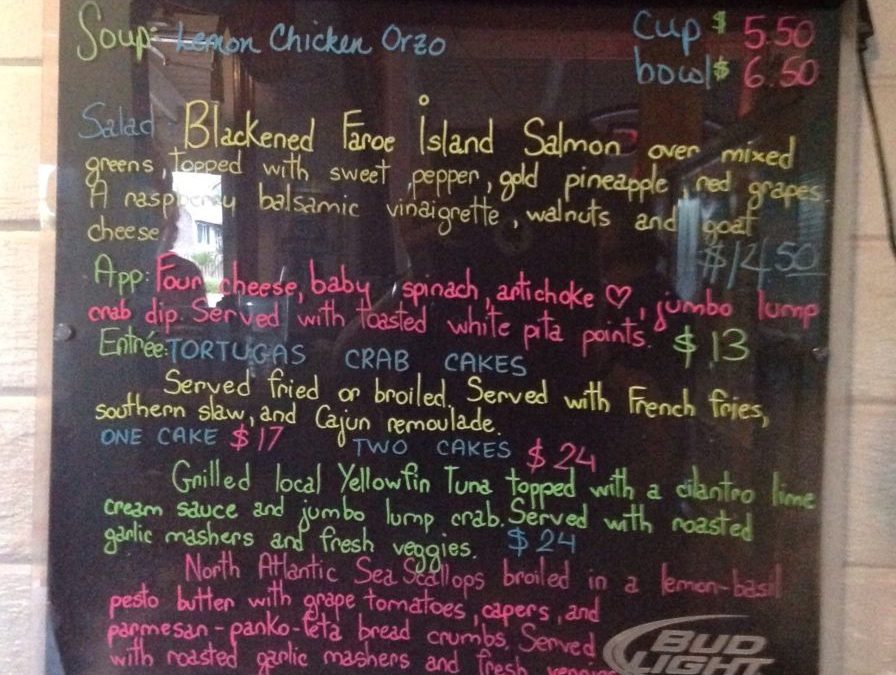 Soup: Lemon Chicken Orzo cup $ 5.50
bowl $ 6.50
Salad: Blackened Faroe Island Salmon over mixed
greens, topped with sweet pepper, gold pineapple, red grapes.
A raspberry balsamic vinaigrette, walnuts and goat
cheese $14.50
App: Four cheese, baby spinach, artichoke ♡, jumbo lump
crab dip. Served with toasted white pita points. $13
Entrée: TORTUGAS CRAB CAKES
Served fried or broiled. Served with French fries,
southern slaw, and Cajun remoulade.
ONE CAKE $17 TWO CAKES $24
Grilled local Yellowfin Tuna topped with a cilantro lime
cream sauce and jumbo lump crab. Served with roasted
garlic mashers and fresh veggies. $24
North Atlantic Sea Scallops broiled in a lemon-basil
pesto butter with grape tomatoes, capers, and
parmesan-panko-feta bread crumbs. Served
with roasted garlic mashers and fresh
BUD
LIGHT